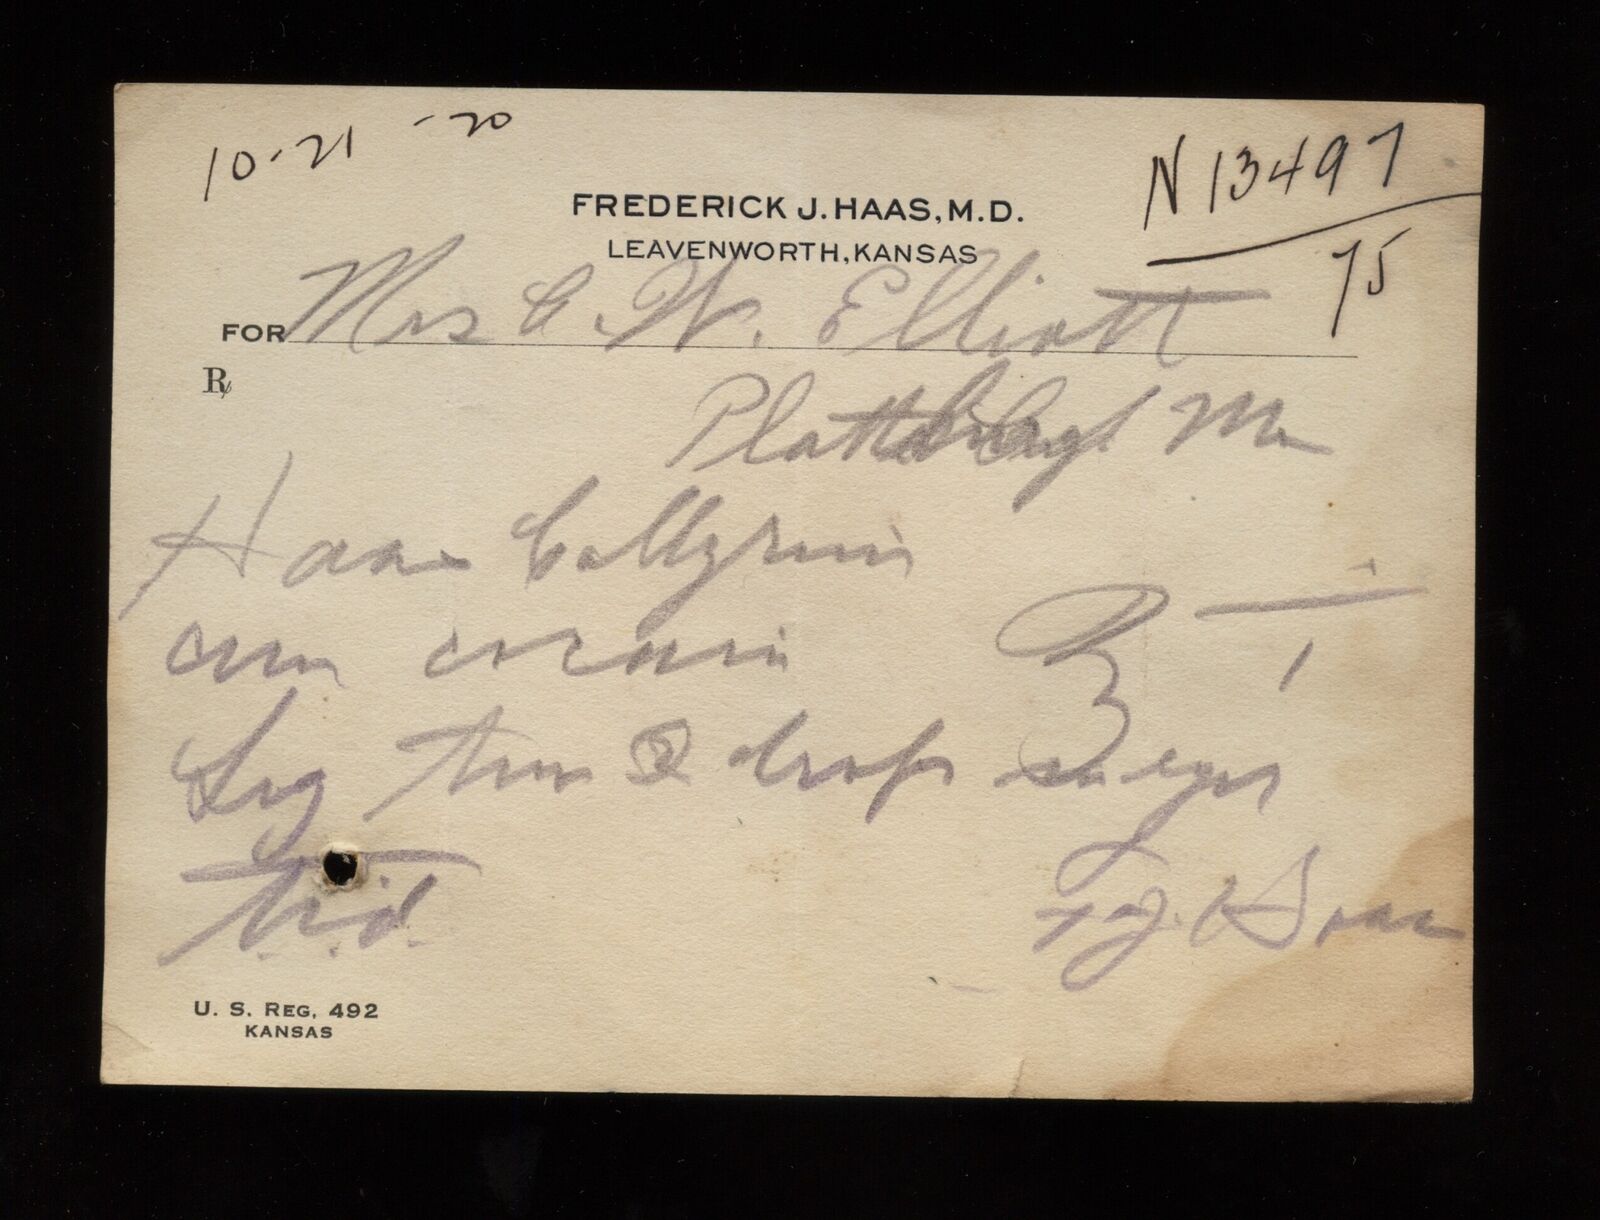 10-21-20
N 13497
75
FREDERICK J. HAAS, M.D.
LEAVENWORTH, KANSAS
FOR Mrs C. W. Elliott
℞
Mo
Haas Collyrium
cum cocain ℥ i
Sig two 2 drops in eyes
t.i.d.
F J. Haas
U. S. REG. 492
KANSAS